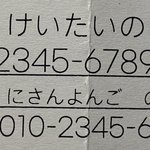 けいたいの
2345-6789
にさんよんご の
010-2345-6